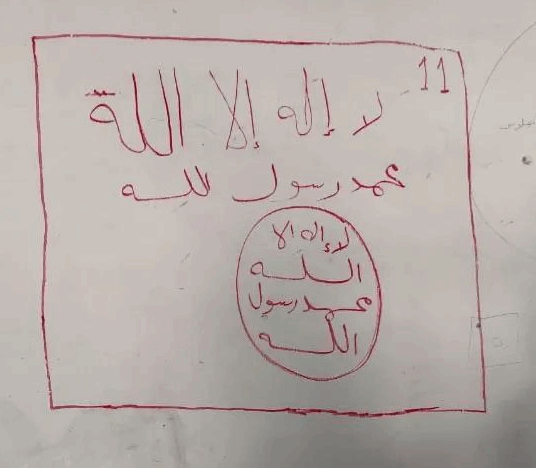 11
لا إله إلا اللة
محمد رسول لله
لا إله الا
الله
محمد رسول
الله